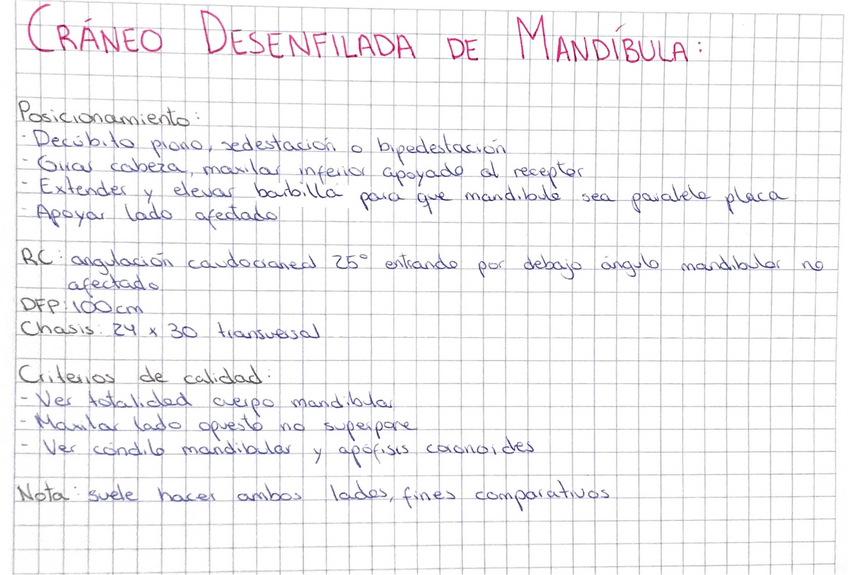 CRÁNEO DESENFILADA DE MANDÍBULA:
Posicionamiento:
- Decúbito prono, sedestación o bipedestación
- Girar cabeza, maxilar inferior apoyado al receptor
- Extender y elevar barbilla para que mandíbula sea paralela placa
- Apoyar lado afectado
RC: angulación caudocraneal 25° entrando por debajo ángulo mandibular no
afectado
DFP: 100cm
Chasis: 24 x 30 transversal
Criterios de calidad:
- Ver totalidad cuerpo mandibular
- Maxilar lado opuesto no superpone
- Ver cóndilo mandibular y apófisis coronoides
Nota: suele hacer ambos lados, fines comparativos